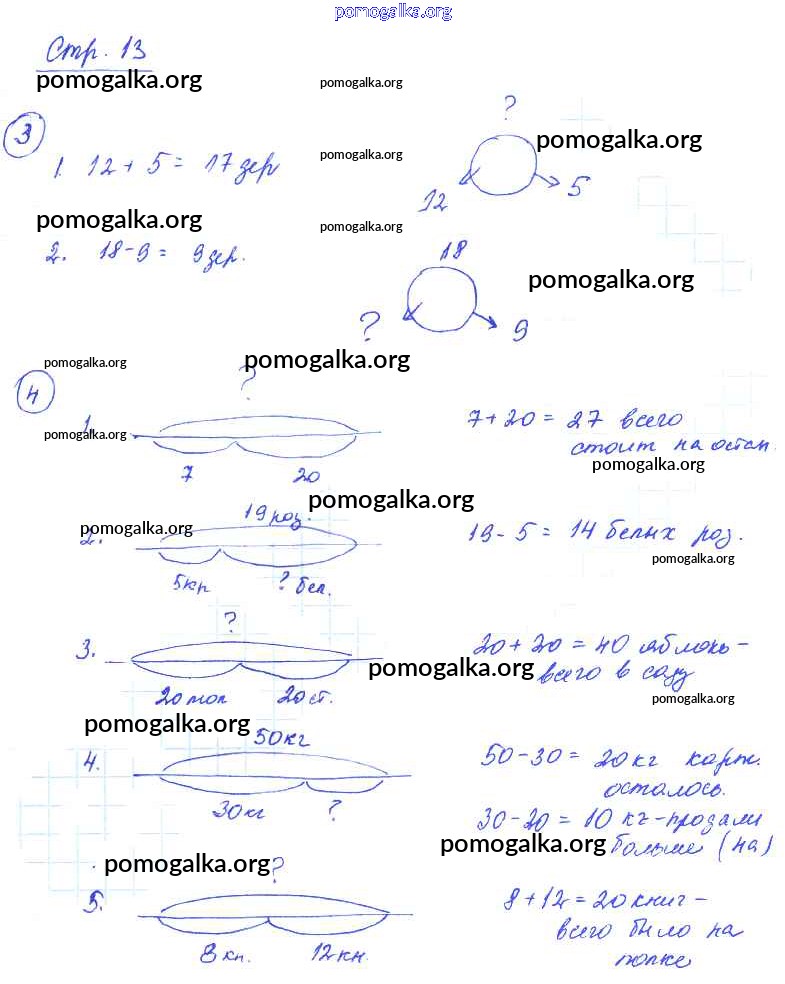 pomogalka.org
Стр. 13
pomogalka.org pomogalka.org
?
3
pomogalka.org
1. 12 + 5 = 17 дер pomogalka.org
12 5
pomogalka.org pomogalka.org
2. 18 - 9 = 9 дер.
18
pomogalka.org
? 9
pomogalka.org pomogalka.org
4
?
1.
pomogalka.org
7 + 20 = 27 всего
стоит на остан.
pomogalka.org
7 20
pomogalka.org
19 роз.
pomogalka.org
2.
19 - 5 = 14 белых роз.
pomogalka.org
5кр ? бел.
?
3.
20 + 20 = 40 яблонь -
всего в саду
pomogalka.org
20 мол 20 ст.
pomogalka.org
pomogalka.org
50 кг
4.
50 - 30 = 20 кг карт.
осталось.
30 кг ?
30 - 20 = 10 кг - продали
больше (на)
pomogalka.org
pomogalka.org ?
5.
8 + 12 = 20 книг -
всего было на
полке
8 кн. 12 кн.